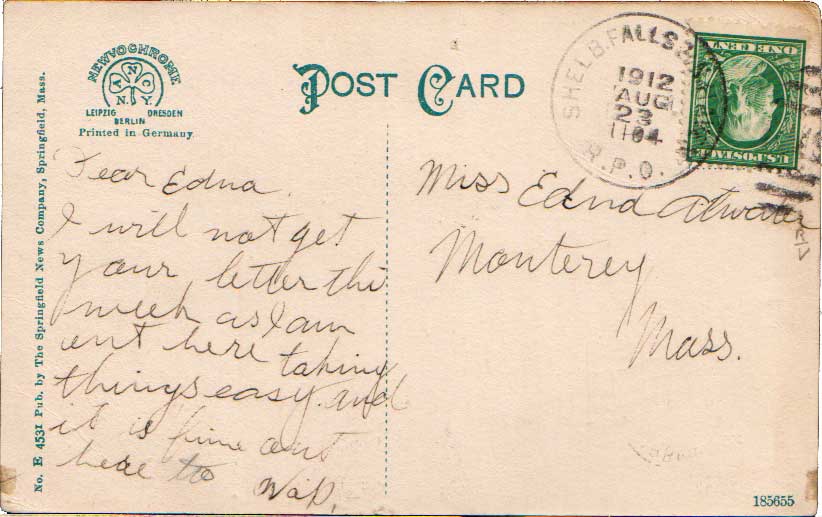 No. E 4531 Pub. by The Springfield News Company, Springfield, Mass.
NEWVOCHROME
T N C
N. Y.
LEIPZIG DRESDEN
BERLIN
Printed in Germany.
POST CARD
SHELB. FALLS &
1912
AUG
23
1104
R.P.O.
ONE CENT
U.S. POSTAGE
Dear Edna.
I will not get
your letter thi
week as I am
out here taking
things easy and
it is fine out
here to
Miss Edna Atwater
Monterey
Mass.
185655